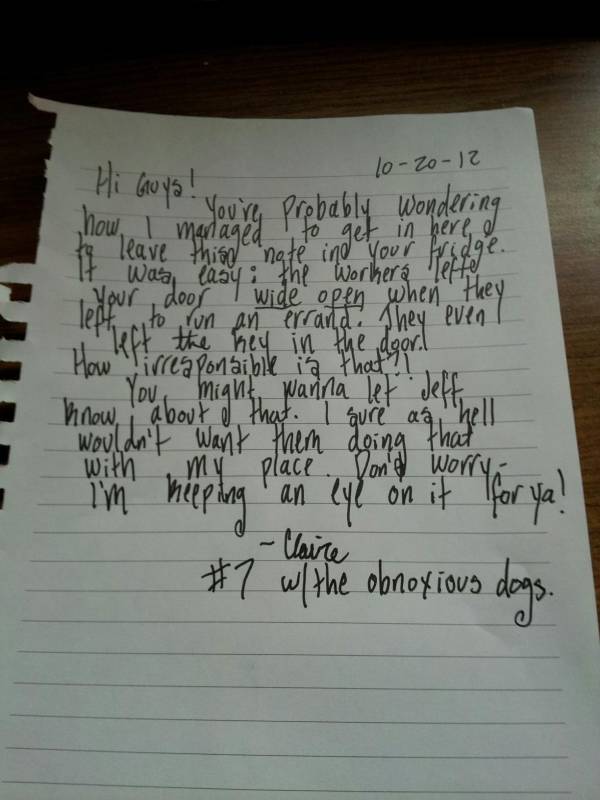 10-20-12
Hi Guys!
You're probably wondering
how I managed to get in here &
to leave this note in your fridge.
It was easy: the workers left
your door wide open when they
left to run an errand. They even
left the key in the door!
How irresponsible is that?!
You might wanna let Jeff
know about that. I sure as hell
wouldn't want them doing that
with my place. Don't worry-
I'm keeping an eye on it for ya!
- Claire
#7 w/the obnoxious dogs.